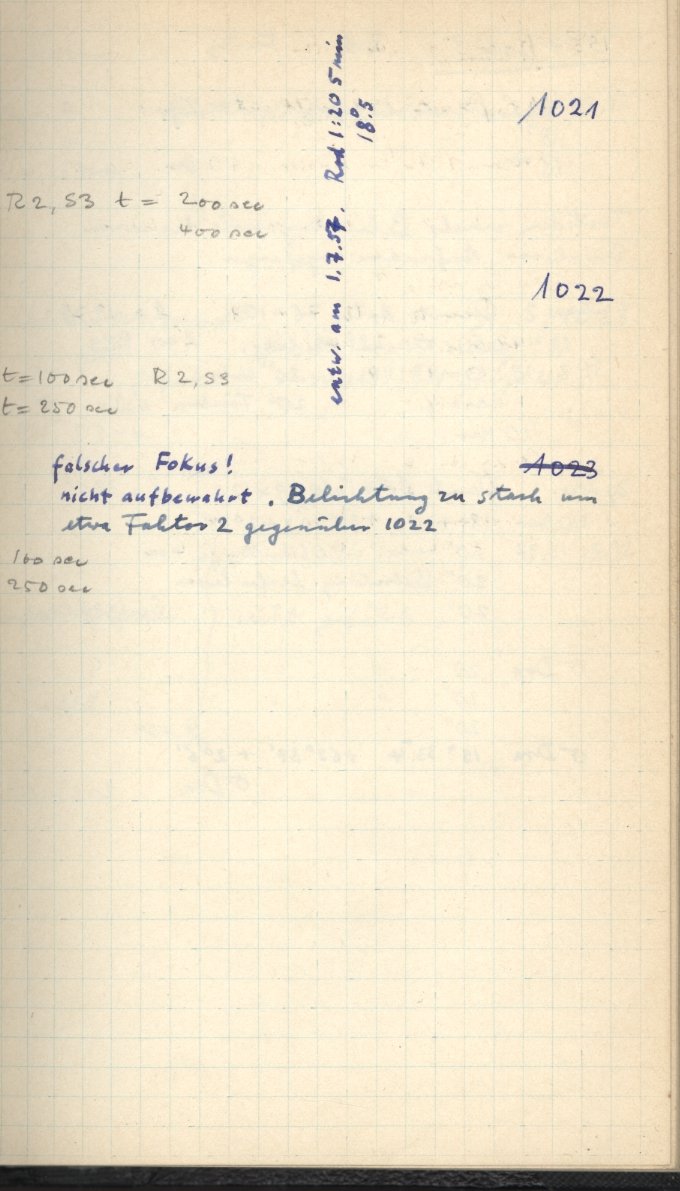 1021
entw. am 1.7.57. Rod 1:20 5 min
18.5°
R2, S3 t = 200 sec
400 sec
1022
t=100 sec R2, S3
t=250 sec
falscher Fokus! 1023
nicht aufbewahrt. Belichtung zu stark um
etwa Faktor 2 gegenüber 1022
100 sec
250 sec